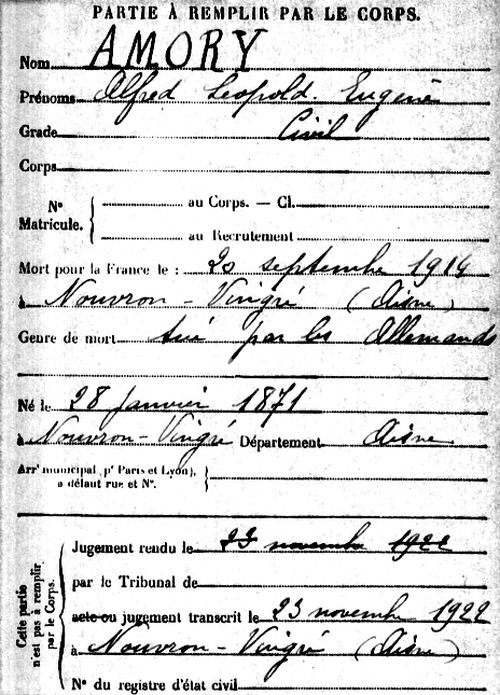 PARTIE À REMPLIR PAR LE CORPS.
Nom AMORY
Prénoms Alfred Leopold. Eugène
Grade Civil
Corps
N° Matricule. { au Corps. — Cl.
au Recrutement
Mort pour la France le : 20 septembre 1914
à Nouvron - Vingré (Aisne)
Genre de mort tué par les Allemands
Né le 28 janvier 1871
à Nouvron - Vingré Département Aisne
Arrt municipal (pr Paris et Lyon), à défaut rue et N°. {
Cette partie n'est pas à remplir par le Corps.
Jugement rendu le 23 novembre 1922
par le Tribunal de
acte ou jugement transcrit le 23 novembre 1922
à Nouvron - Vingré (Aisne)
N° du registre d'état civil